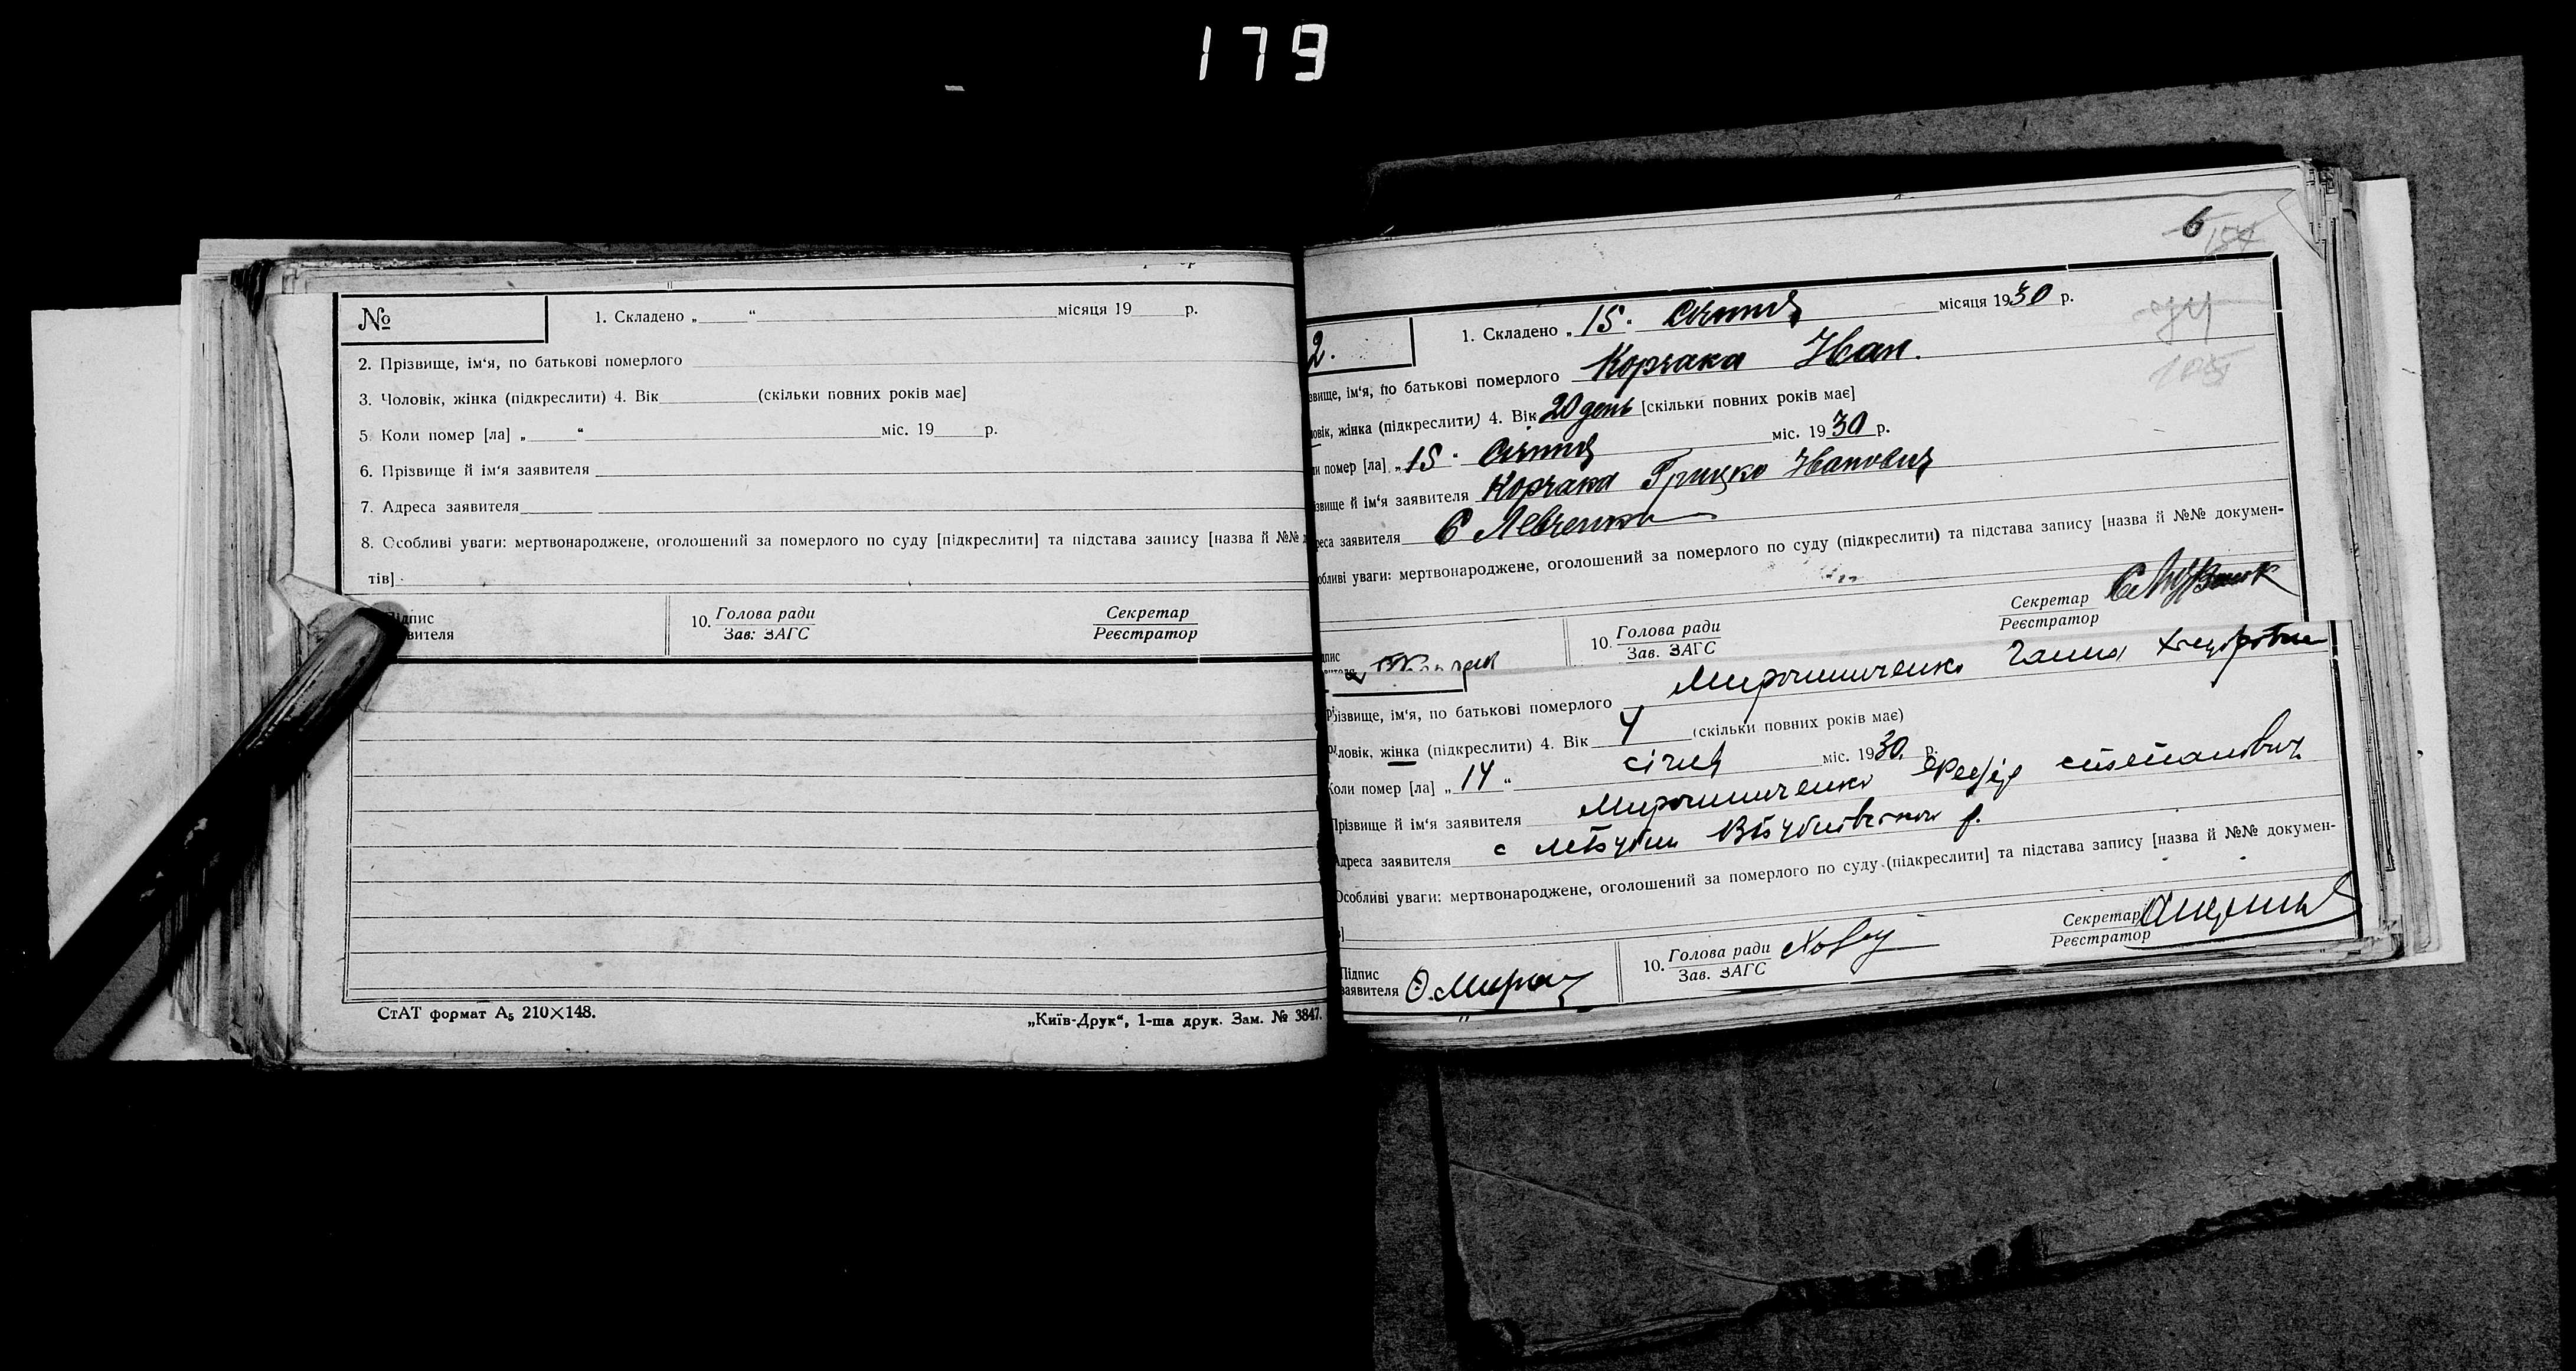 179
№
1. Складено „ “ місяця 19 р.
2. Прізвище, ім‘я, по батькові померлого
3. Чоловік, жінка (підкреслити) 4. Вік (скільки повних років має]
5. Коли помер [ла] „ “ міс. 19 р.
6. Прізвище й ім‘я заявителя
7. Адреса заявителя
8. Особливі уваги: мертвонароджене, оголошений за померлого по суду [підкреслити] та підстава запису [назва й №№
тів]
підпис
вителя
10. Голова ради
Зав: ЗАГС
Секретар
Реєстратор
СтАТ формат А₅ 210×148.
„Київ-Друк“, 1-ша друк. Зам. № 3847.
6
2.
1. Складено „ 15 “ січня місяця 1930 р.
звище, ім‘я, по батькові померлого Корчака Іван.
ловік, жінка (підкреслити) 4. Вік 20 день [скільки повних років має]
ли помер [ла] „ 15 “ січня міс. 1930 р.
звище й ім‘я заявителя Корчака Грицко Іванович
реса заявителя С Левченки
обливі уваги: мертвонароджене, оголошений за померлого по суду (підкреслити) та підстава запису [назва й №№ докумен-
10. Голова ради
Зав. ЗАГС
Секретар
Реєстратор
різвище, ім‘я, по батькові померлого Мирошниченко Ганна
ловік, жінка (підкреслити) 4. Вік 4 (скільки повних років має)
Коли помер [ла] „ 14 “ січня міс. 1930. р.
Прізвище й ім‘я заявителя Мирошниченко степанович
Адреса заявителя с
Особливі уваги: мертвонароджене, оголошений за померлого по суду (підкреслити] та підстава запису [назва й №№ докумен-
Підпис
заявителя
10. Голова ради
Зав. ЗАГС
Секретар
Реєстратор